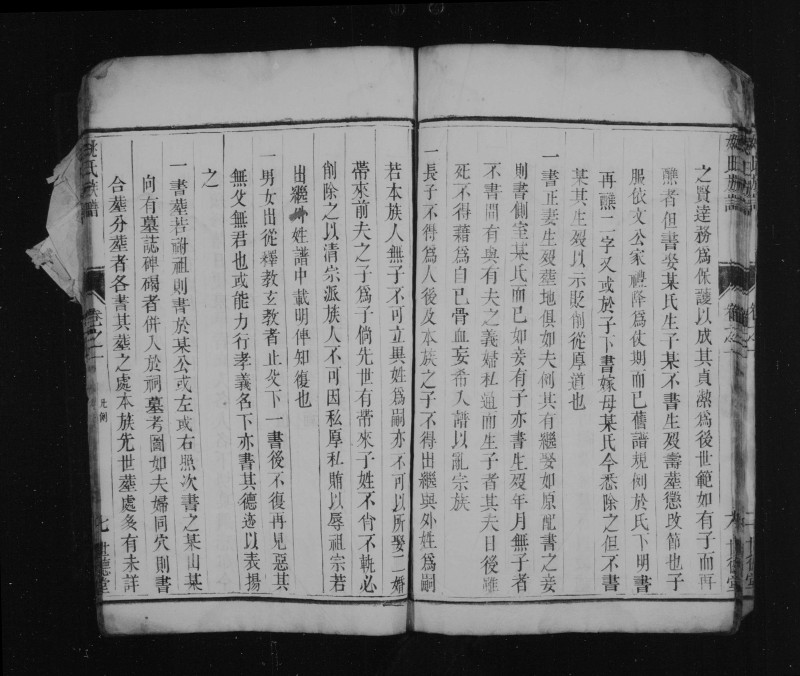 之賢達務爲保護以成其貞潔爲後世範如有子而再
醮者但書娶某氏生子某不書生歿壽塟懲攺節也子
服依文公家禮降爲仗期而已舊譜規例於氏下明書
再醮二字又或於子下書嫁母某氏今悉除之但不書
某其生歿以示貶削從厚道也
一書正妻生歿塟地俱如夫例其有繼娶如原配書之妾
則書側室某氏而已如妾有子亦書生歿年月無子者
不書間有與有夫之義婦私通而生子者其夫日後雖
死不得藉爲自已骨血妄希入譜以亂宗族
一長子不得爲人後及本族之子不得出繼與外姓爲嗣
若本族人無子不可立異姓爲嗣亦不可以所娶二婚
帶來前夫之子爲子倘先世有帶來子姓不肖不軌必
削除之以清宗派族人不可因私厚私賄以辱祖宗若
出繼外姓譜中載明俾知復也
一男女出從釋教玄教者止父下一書後不復再見惡其
無父無君也或能力行孝義名下亦書其德迹以表揚
之
一書塟若祔祖則書於某公或左或右照次書之某山某
向有墓誌碑碣者併入於祠墓考圖如夫婦同穴則書
合塟分塟者各書其塟之處本族先世塟處多有未詳
姚氏族譜
卷之一
凡例
七
世德堂